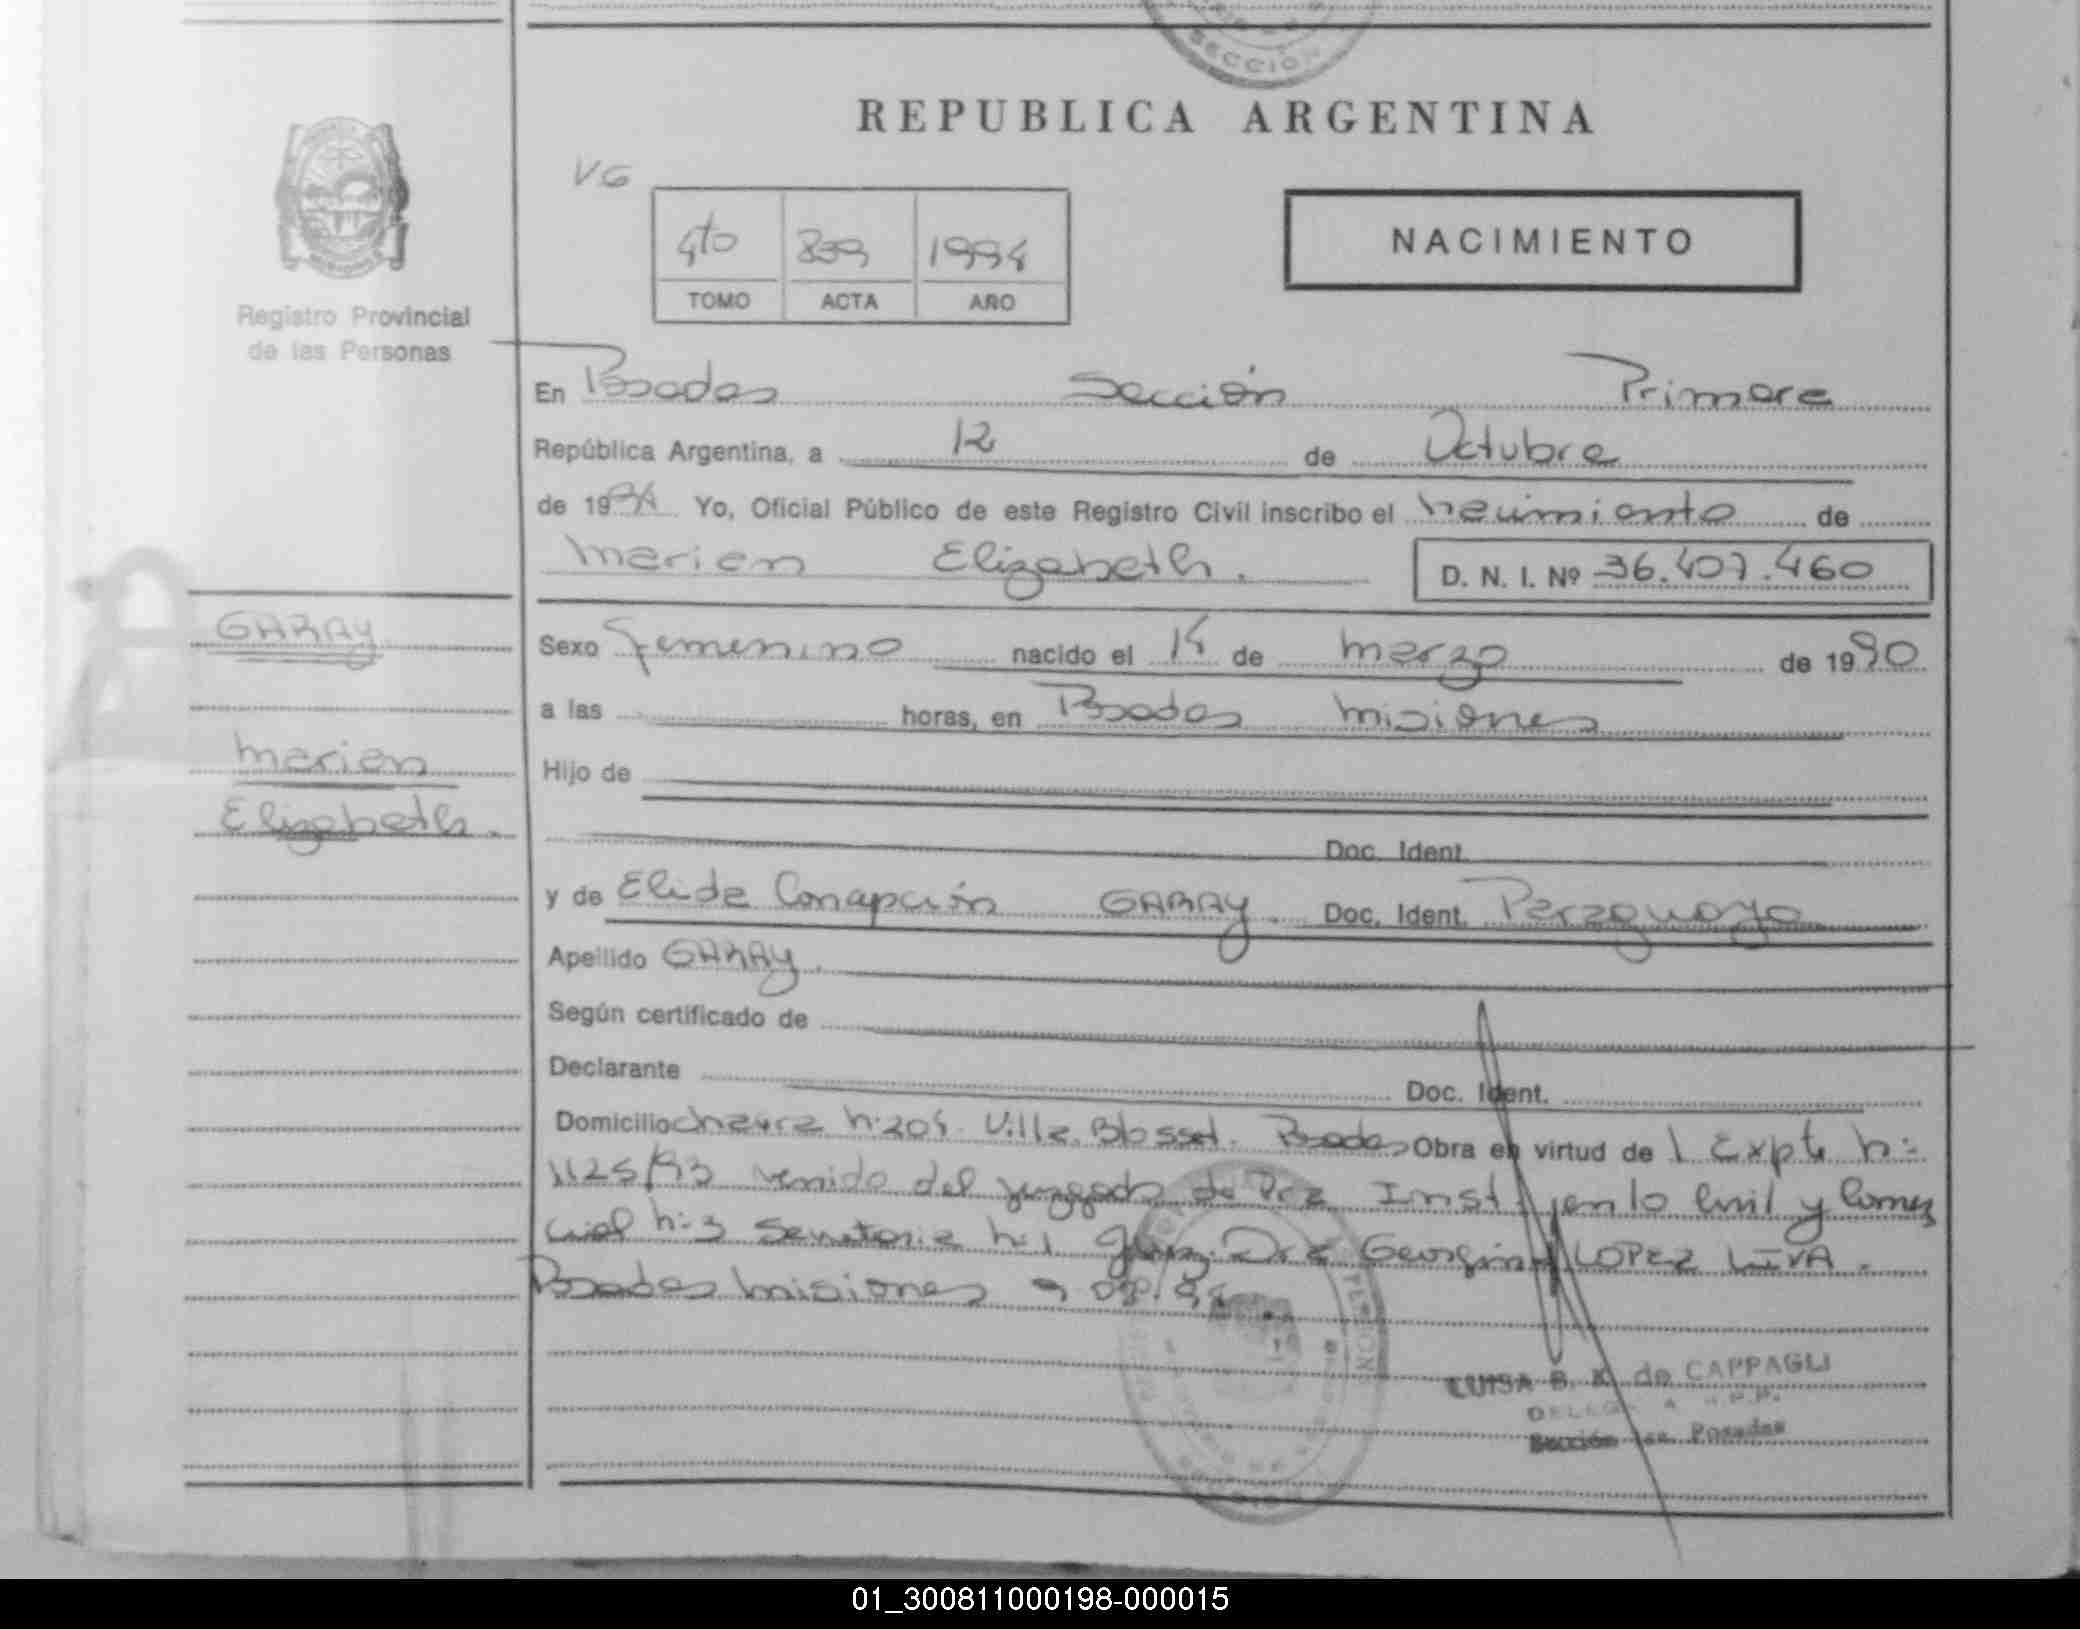 SECCION
REPUBLICA ARGENTINA
VG
4to 839 1994
TOMO ACTA AÑO
NACIMIENTO
Registro Provincial
de las Personas
En Posadas Sección Primera
República Argentina, a 12 de Octubre
de 1994 Yo, Oficial Público de este Registro Civil inscribo el nacimiento de
Marien Elizabeth. D. N. I. Nº 36.407.460
GARAY
Marien
Elizabeth.
Sexo Femenino nacido el 14 de marzo de 1990
a las horas, en Posadas Misiones
Hijo de
Doc. Ident.
y de Elida Concepción GARAY. Doc. Ident. Paraguaya
Apellido GARAY.
Según certificado de
Declarante Doc. Ident.
Domicilio chacra n:204. Villa Blosset. Posadas Obra en virtud de 1 Expte n:
1125/93 venido del juzgado de Pra Inst. en lo Civil y Comer
cial n:3 Secretaria n:1 Dra Georgina LOPEZ LIVA.
Posadas Misiones
LUISA B. K. de CAPPAGLI
Sección 1ra. Posadas
01_300811000198-000015